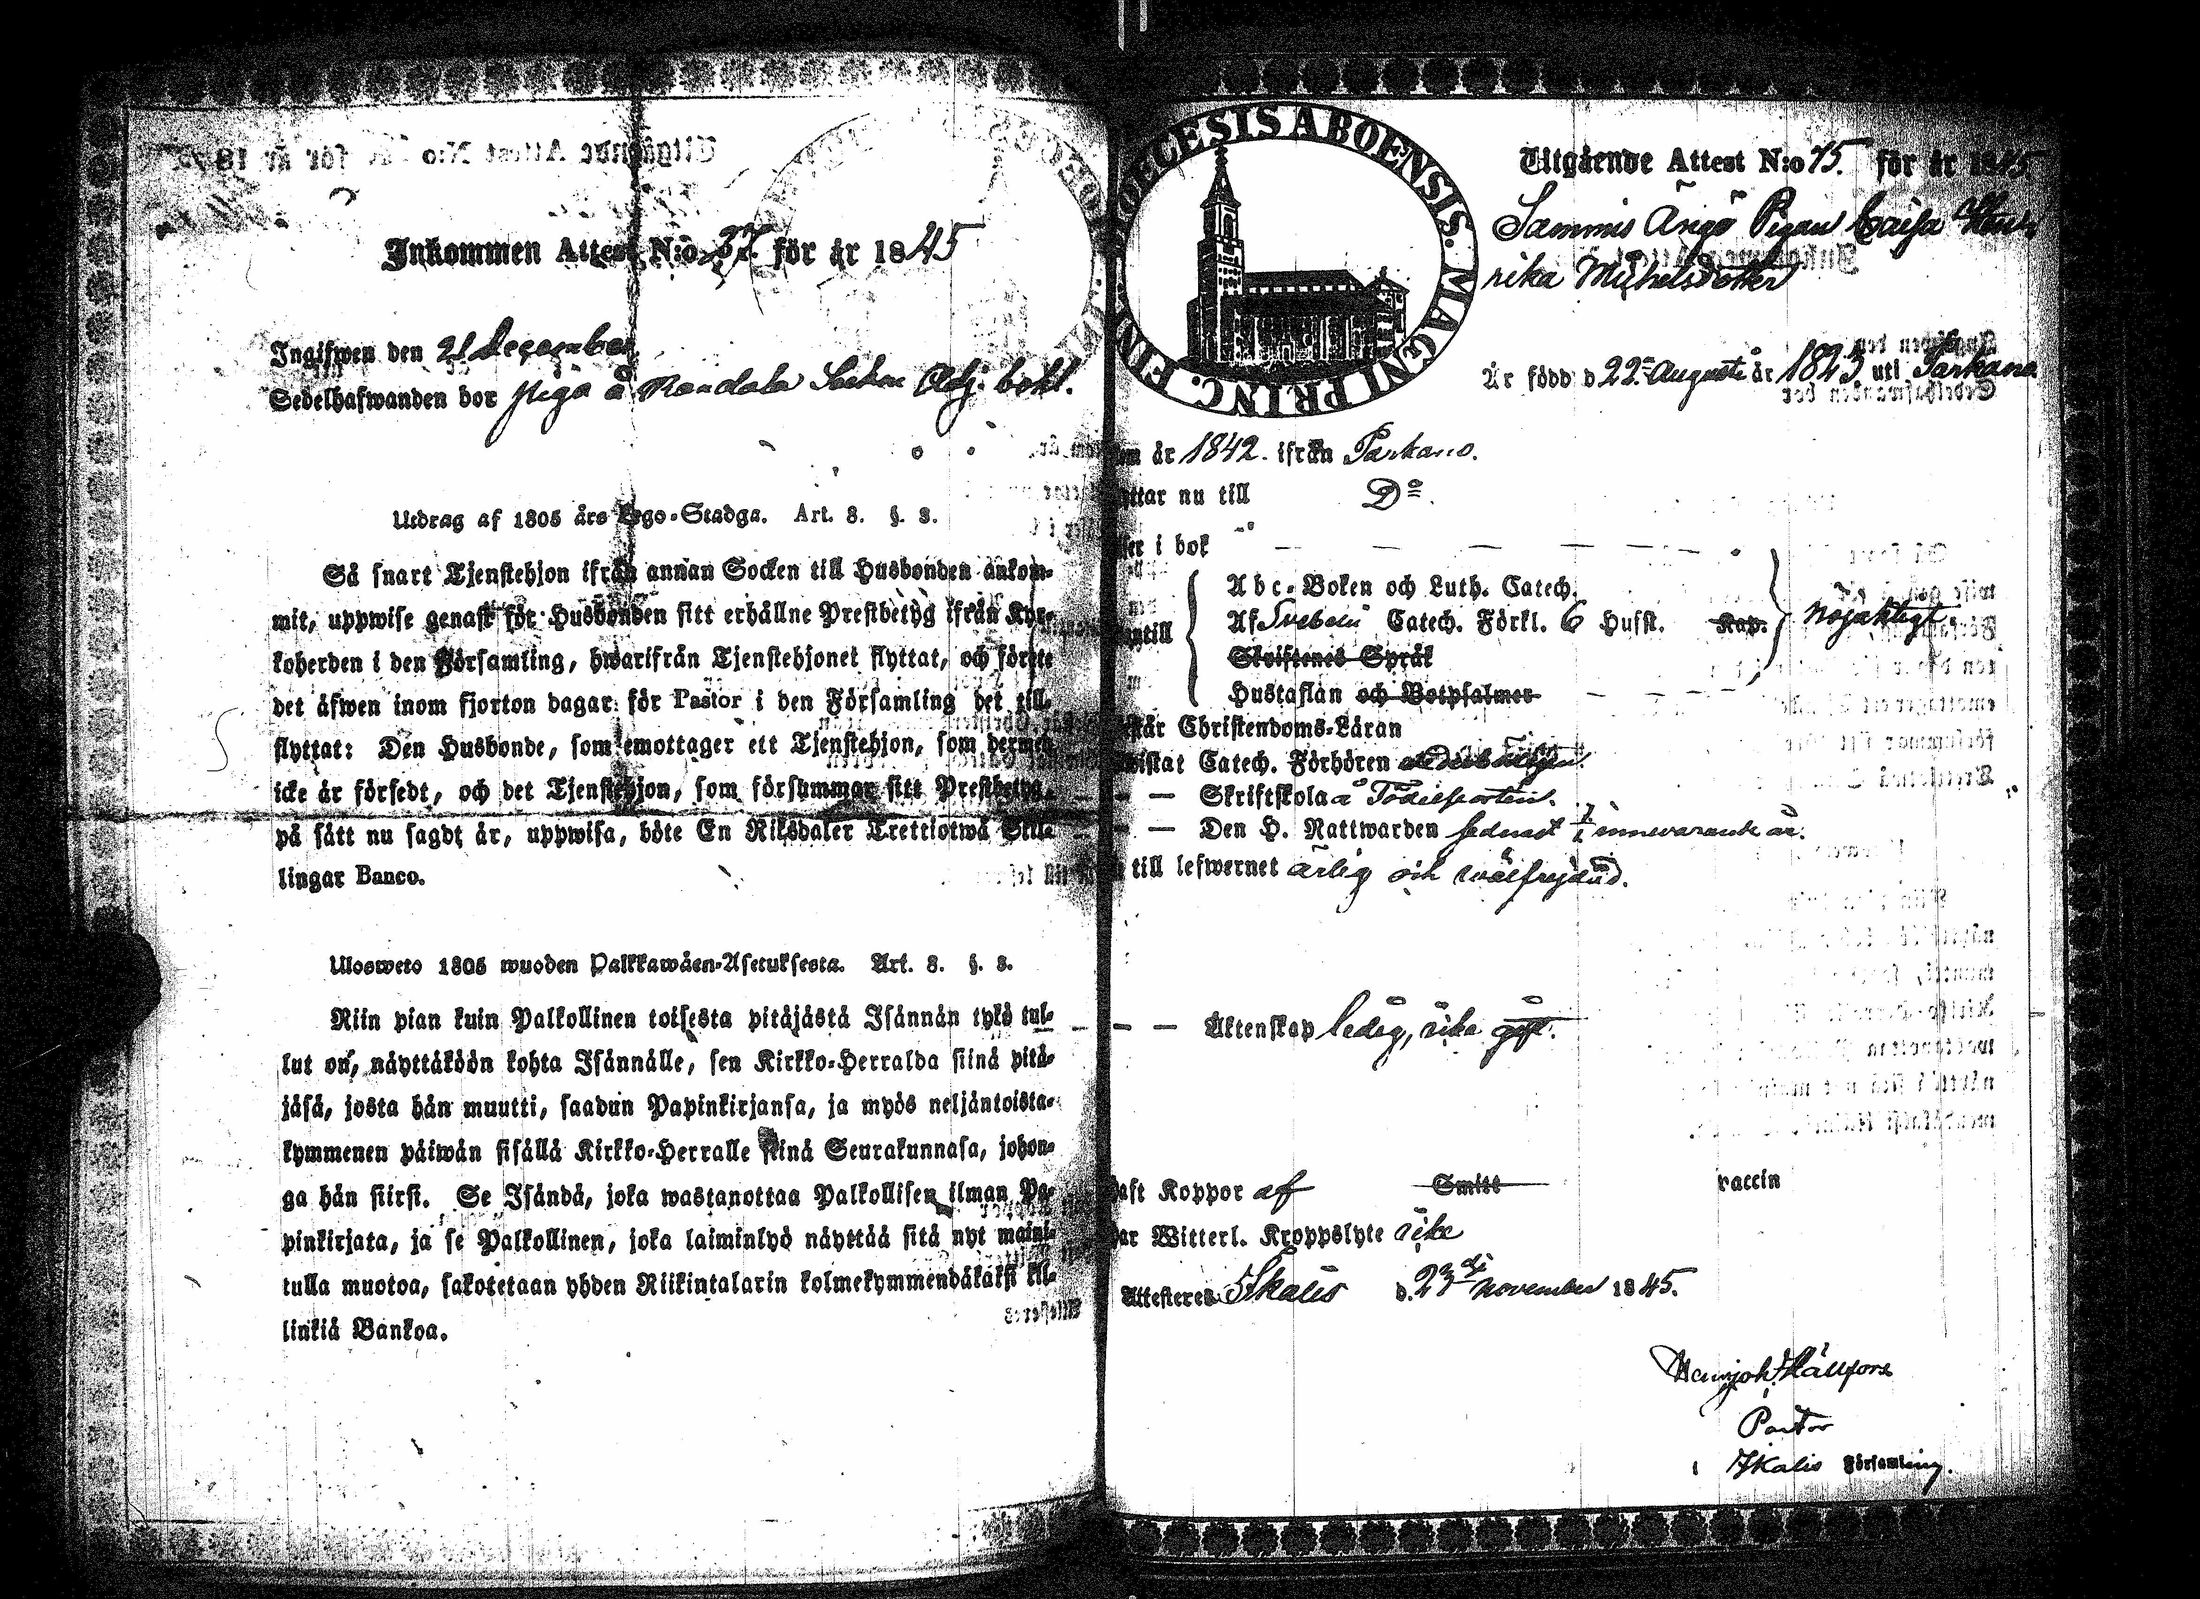 Inkommen Attest N:o 37. för år 1845
Ingifwen den 21 December
Sedelhafwanden bor piga å Socken
Utdrag af 1805 års Lego-Stadga. Art. 8. §. 3.
Så snart Tjenstehjon ifrån annan Socken till Husbonden ankom-
mit, uppwise genast för Husbonden sitt erhållne Prestbetyg ifrån Kyr-
koherden i den Församling, hwarifrån Tjenstehjonet flyttat, och förete
det äfwen inom fjorton dagar för Pastor i den Församling det till-
flyttat: Den Husbonde, som emottager ett Tjenstehjon, som dermed
icke är försedt, och det Tjenstehjon, som försummar sitt Prestbetyg,
på sätt nu sagdt är, uppwisa, böte En Riksdaler Trettiotwå Skil-
lingar Banco.
Ulosweto 1805 wuoden Palkkawäen-Asetuksesta. Art. 8. §. 3.
Niin pian kuin Palkollinen toisesta pitäjästä Isännän tykö tul-
lut on, näyttäköön kohta Isännälle, sen Kirkko-Herralda siinä pitä-
jäsä, josta hän muutti, saadun Papinkirjansa, ja myös neljäntoista-
kymmenen päiwän sisällä Kirkko-Herralle siinä Seurakunnasa, johon-
ga hän siirsi. Se Isändä, joka wastanottaa Palkollisen ilman Pa-
pinkirjata, ja se Palkollinen, joka laiminlyö näyttää sitä nyt maini-
tulla muotoa, sakotetaan yhden Riikintalarin kolmekymmendäkaksi kil-
linkiä Bankoa.
DIOECESIS ABOENSIS. MAGNI PRINC. FIN
Utgående Attest N:o 75. för år 1845
Pigan Caisa Hen-
rika Michelsdotter
Är född d 22 Augusti år 1823 uti Parkano
om år 1842. ifrån Parkano.
ttar nu till Do.
ser i bok
Abc-Boken och Luth. Catech.
Af Svebelii Catech. Förkl. 6 Hufst. Kap. nöjaktigt.
antill
Skriftenes Språk
Hustaflan och Botpsalmer
står Christendoms-Läran
wistat Catech. Förhören
Skriftskola å
Den H. Nattwarden sednast innevarande år.
till lefwernet ärlig och wälfrejdad.
Äktenskap ledig, icke gift.
haft Koppor af Smitt vaccin
har Witterl. Kroppslyte icke
Attesteres Ikalis d. 23 November 1845.
Hällfors
Pastor
i Ikalis Församling.